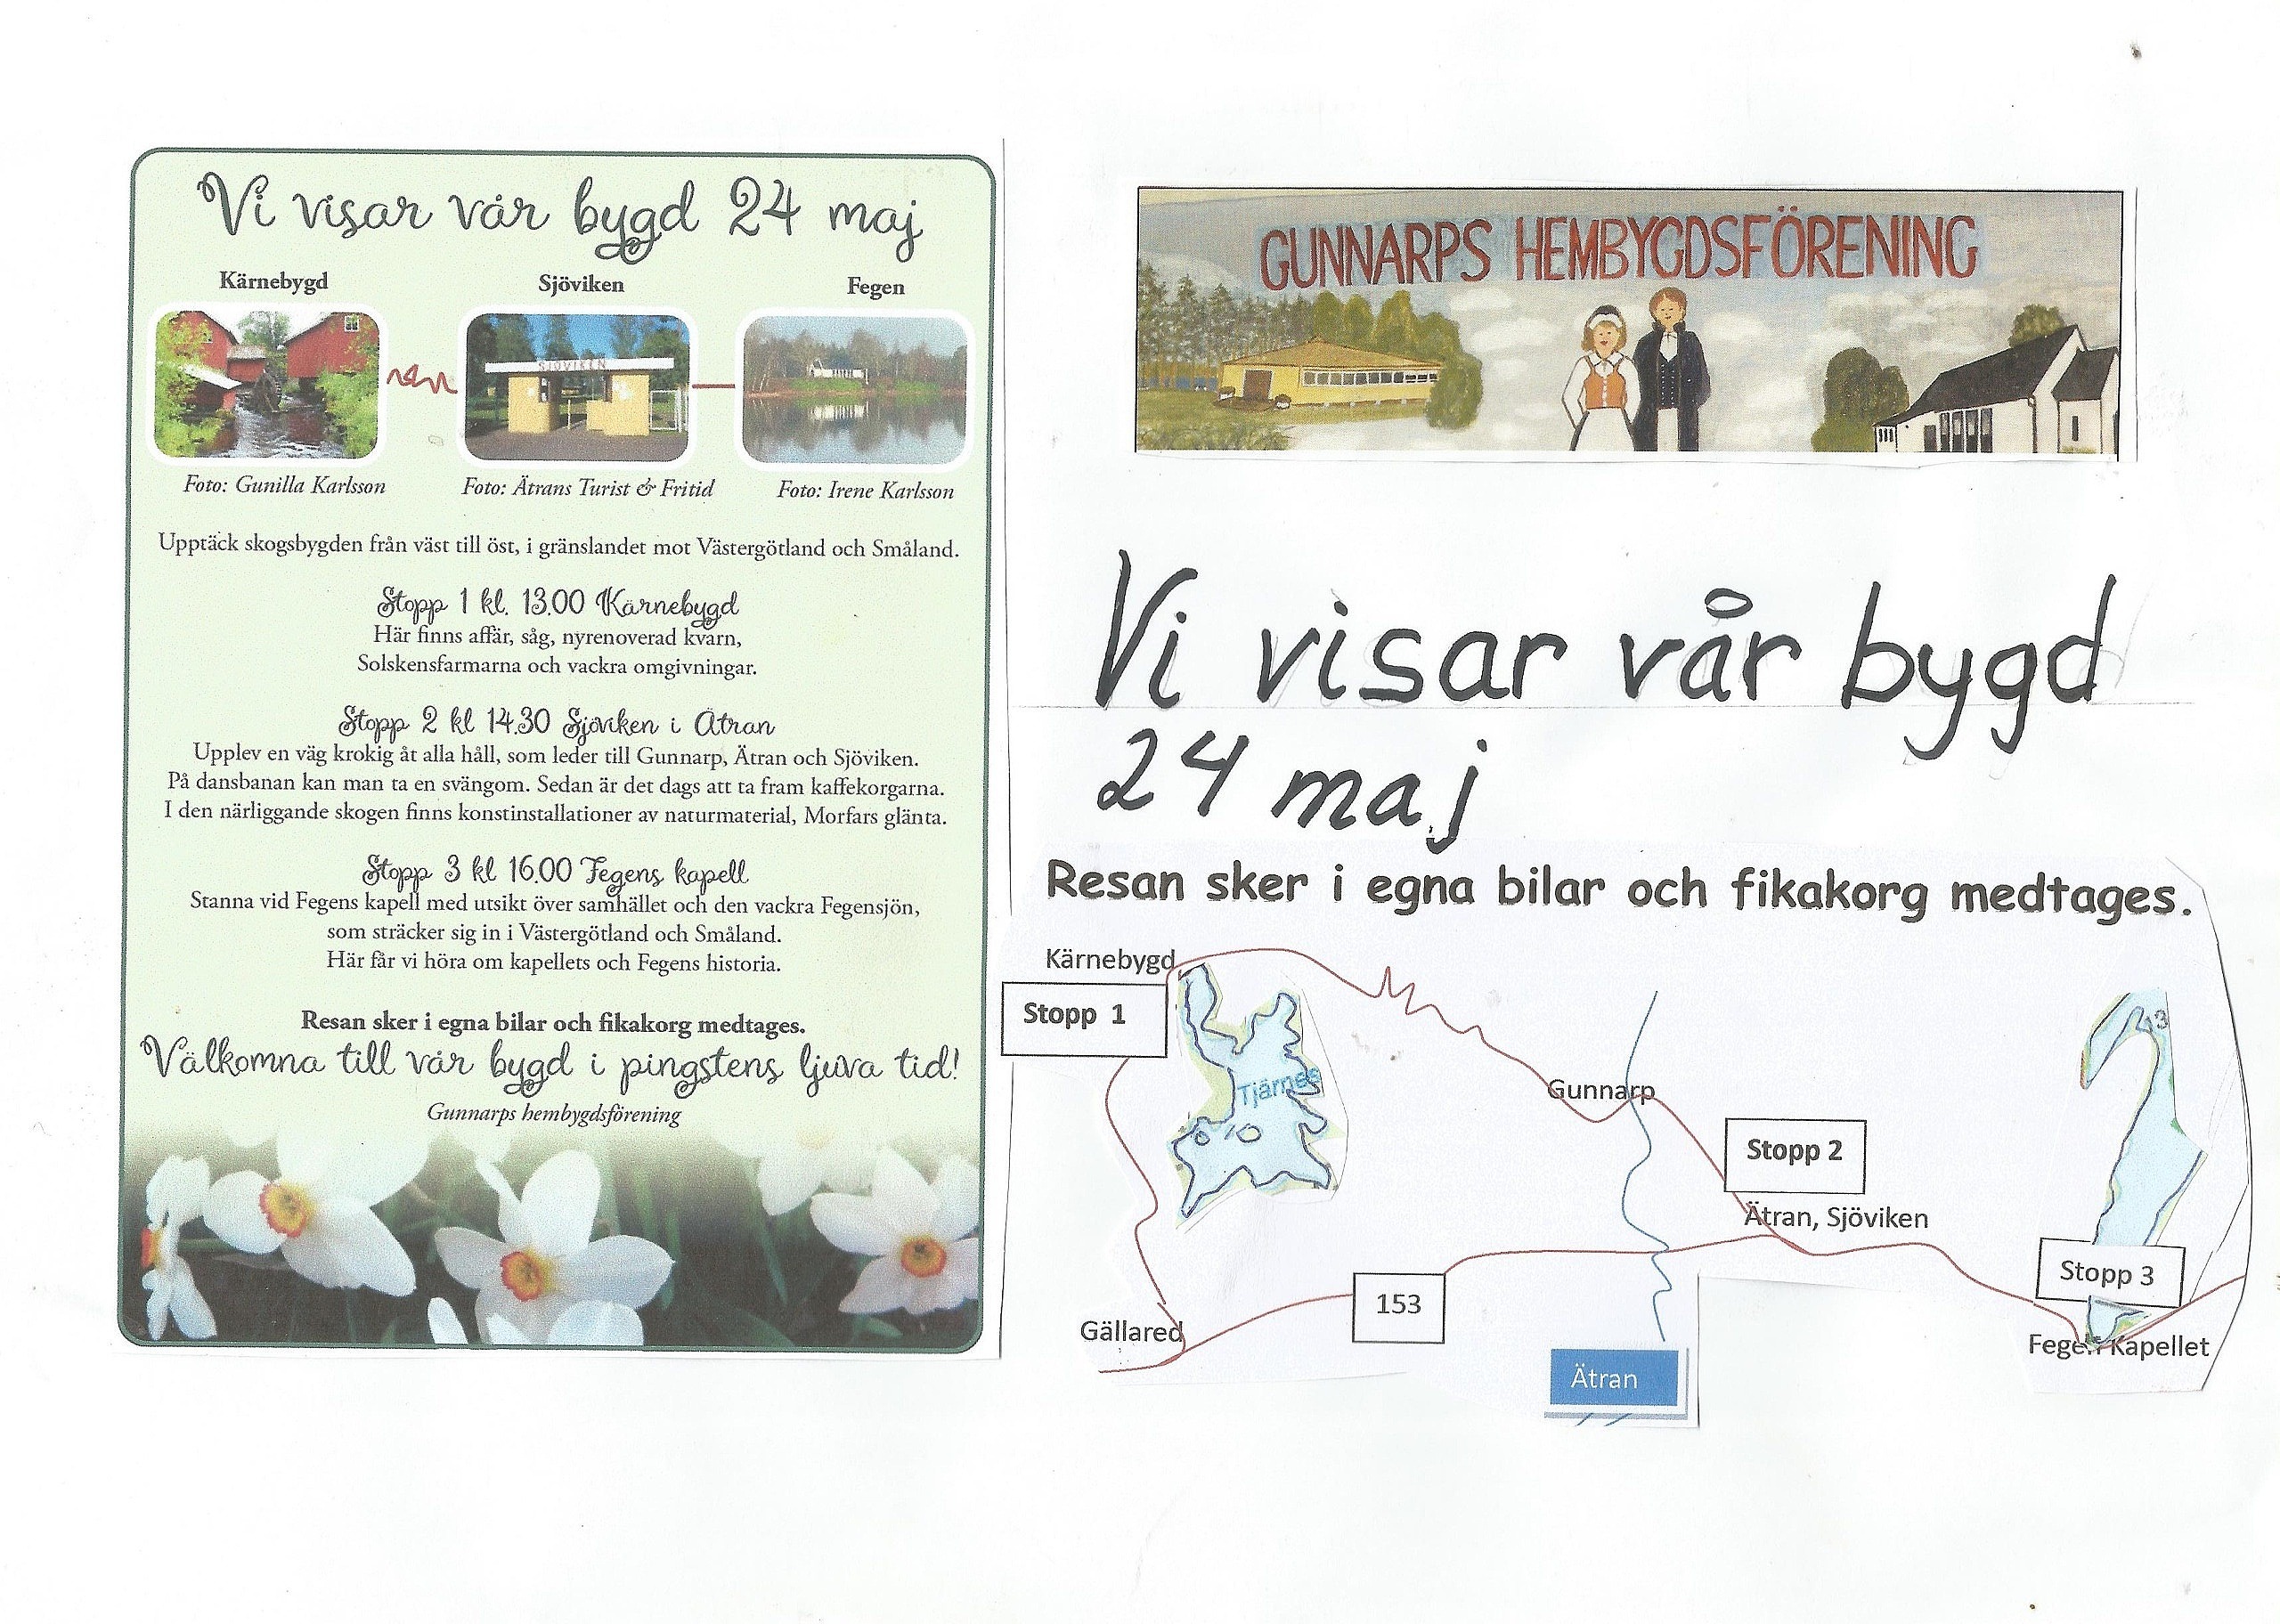 Vi visar vår bygd 24 maj
Kärnebygd
Sjöviken
Fegen
SJÖVIKEN
Foto: Gunilla Karlsson
Foto: Ätrans Turist & Fritid
Foto: Irene Karlsson
Upptäck skogsbygden från väst till öst, i gränslandet mot Västergötland och Småland.
Stopp 1 kl. 13.00 Kärnebygd
Här finns affär, såg, nyrenoverad kvarn,
Solskensfarmarna och vackra omgivningar.
Stopp 2 kl 14.30 Sjöviken i Ätran
Upplev en väg krokig åt alla håll, som leder till Gunnarp, Ätran och Sjöviken.
På dansbanan kan man ta en svängom. Sedan är det dags att ta fram kaffekorgarna.
I den närliggande skogen finns konstinstallationer av naturmaterial, Morfars glänta.
Stopp 3 kl 16.00 Fegens kapell
Stanna vid Fegens kapell med utsikt över samhället och den vackra Fegensjön,
som sträcker sig in i Västergötland och Småland.
Här får vi höra om kapellets och Fegens historia.
Resan sker i egna bilar och fikakorg medtages.
Välkomna till vår bygd i pingstens ljuva tid!
Gunnarps hembygdsförening
GUNNARPS HEMBYGDSFÖRENING
Vi visar vår bygd
24 maj
Resan sker i egna bilar och fikakorg medtages.
Kärnebygd
Stopp 1
Tjärnes
13
Gunnarp
Stopp 2
Ätran, Sjöviken
Stopp 3
153
Gällared
Fegen Kapellet
Ätran